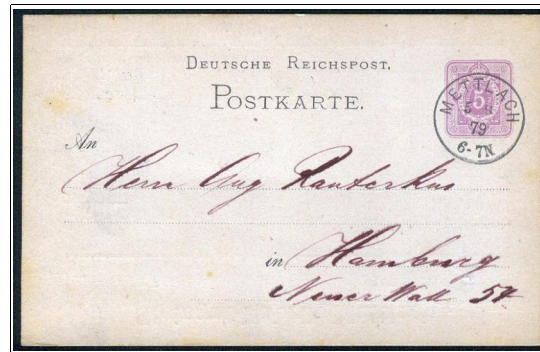 DEUTSCHE REICHSPOST.
POSTKARTE.
5
METTLACH
5
79
6-7N
An
Herrn Aug Rauterkus
in Hamburg
Neuer Wall 54